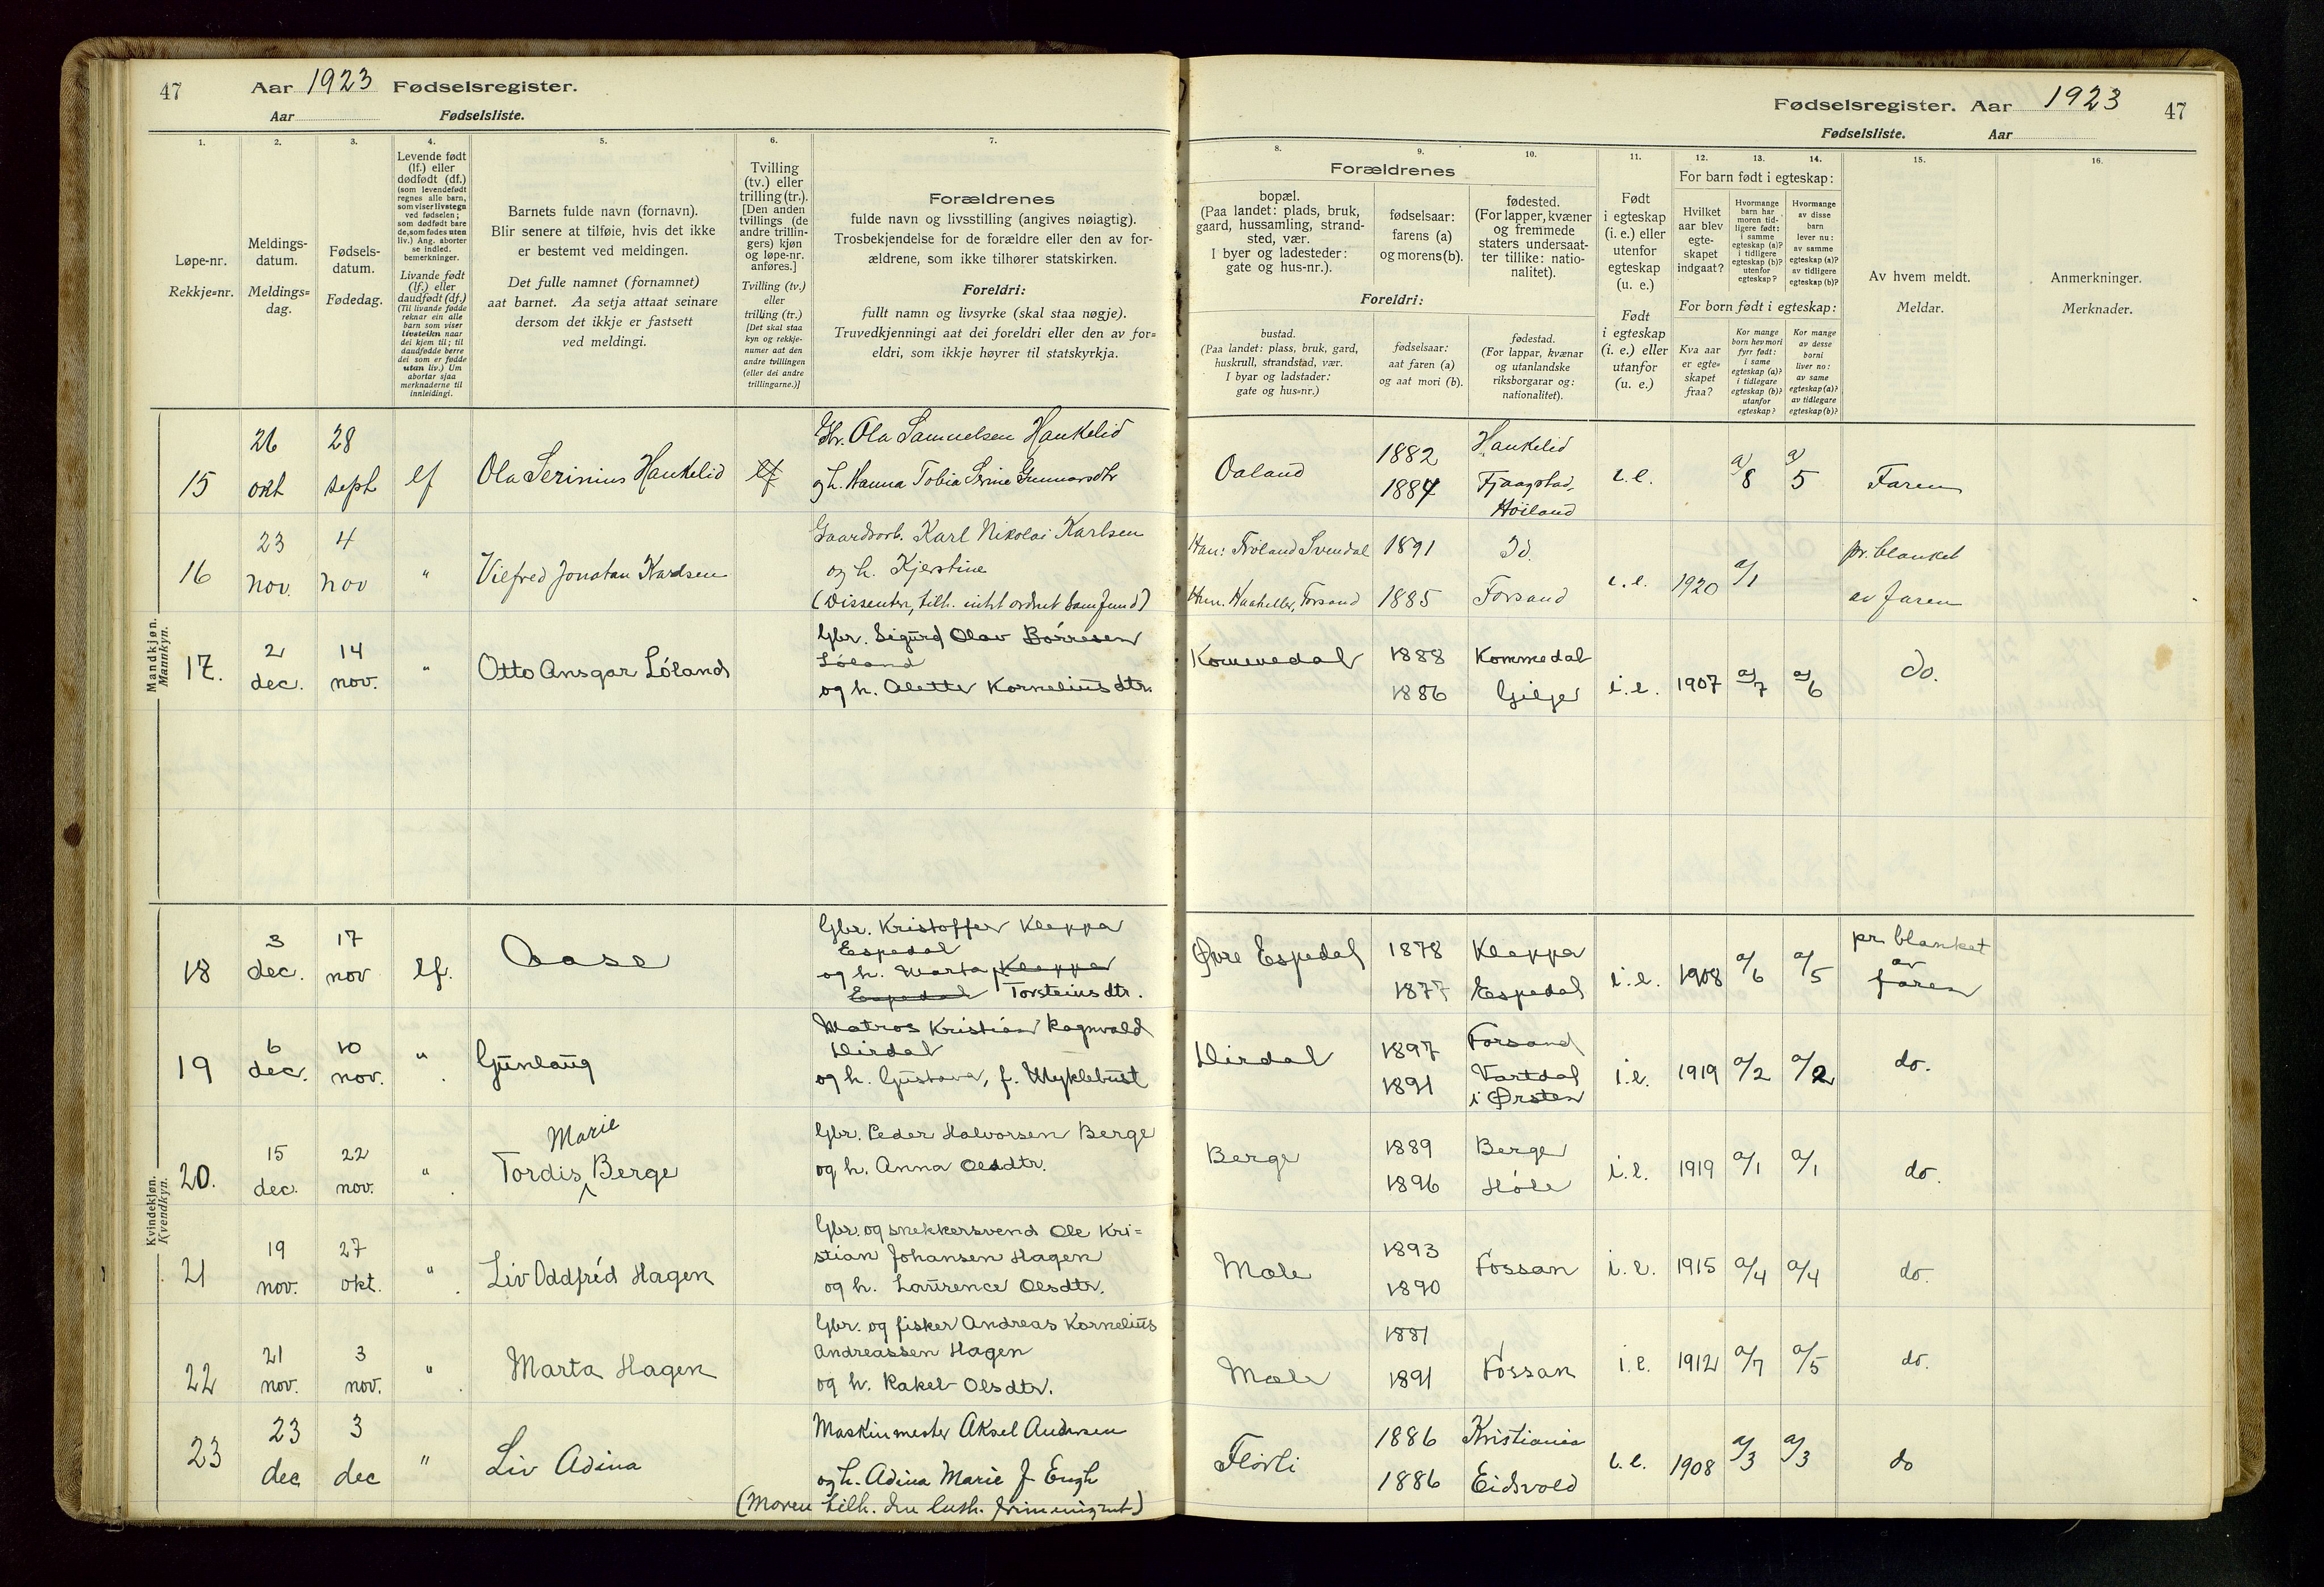 47
Aar 1923 Fødselsregister.
Aar Fødselsliste.
1.
2.
3.
4.
5.
6.
7.
Løpe-nr.
Rekkje=nr.
Meldings-
datum.
Meldings=
dag.
Fødsels-
datum.
Fødedag.
Levende født
(lf.) eller
dødfødt (df.)
(som levendefødt
regnes alle barn,
som viser livstegn
ved fødselen;
som dødfødt bare
de, som fødes uten
liv.) Ang. aborter
se indled.
bemerkninger.
Livande født
(lf.) eller
daudfødt (df.)
(Til livande fødde
reknar ein alle
barn som viser
livsteikn naar
dei kjem til; til
daudfødde berre
dei som er fødde
utan liv.) Um
abortar sjaa
merknaderne til
innleidingi.
Barnets fulde navn (fornavn).
Blir senere at tilføie, hvis det ikke
er bestemt ved meldingen.
Det fulle namnet (fornamnet)
aat barnet. Aa setja attaat seinare
dersom det ikkje er fastsett
ved meldingi.
Tvilling
(tv.) eller
trilling (tr.).
[Den anden
tvillings (de
andre trillin-
gers) kjøn
og løpe-nr.
anføres.]
Tvilling (tv.)
eller
trilling (tr.)
[Det skal staa
kyn og rekkje-
numer aat den
andre tvillingen
(eller dei andre
trillingarne.)]
Forældrenes
fulde navn og livsstilling (angives nøiagtig).
Trosbekjendelse for de forældre eller den av for-
ældrene, som ikke tilhører statskirken.
Foreldri:
fullt namn og livsyrke (skal staa nøgje).
Truvedkjenningi aat dei foreldri eller den av for=
eldri, som ikkje høyrer til statskyrkja.
Fødselsregister. Aar 1923 47
Fødselsliste. Aar
8.
9.
10.
11.
12.
13.
14.
15.
16.
Forældrenes
bopæl.
(Paa landet: plads, bruk,
gaard, hussamling, strand-
sted, vær.
I byer og ladesteder:
gate og hus-nr.).
fødselsaar:
farens (a)
og morens (b).
fødested.
(For lapper, kvæner
og fremmede
staters undersaat-
ter tillike: natio-
nalitet).
Foreldri:
bustad.
(Paa landet: plass, bruk, gard,
huskrull, strandstad, vær.
I byar og ladstader:
gate og hus=nr.)
fødselsaar:
aat faren (a)
og aat mori (b).
fødestad.
(For lappar, kvænar
og utanlandske
riksborgarar og:
nationalitet).
Født
i egteskap
(i. e.) eller
utenfor
egteskap
(u. e.)
Født
i egteskap
(i. e.) eller
utanfor
(u. e.)
For barn født i egteskap:
Hvilket
aar blev
egte-
skapet
indgaat?
Hvormange
barn har
moren tid-
ligere født:
i samme
egteskap (a)?
i tidligere
egteskap (b)?
utenfor
egteskap?
Hvormange
av disse
barn
lever nu:
av samme
egteskap (a)?
av tidligere
egteskap (b)?
For born født i egteskap:
Kva aar
er egte=
skapet
fraa?
Kor mange
born hev mori
fyrr født:
i same
egteskap (a)?
i tidlegare
egteskap (b)?
utanfor
egteskap?
Kor mange
av desse
borni
liver no:
av same
egteskap (a)?
av tidlegare
egteskap (b)?
Av hvem meldt.
Meldar.
Anmerkninger.
Merknader.
Mandkjøn.
Mannkyn.
15 26 okt 28 sept lf Ola Serinius Haukelid lf
Gbr. Ola Samuelsen Haukelid
og h. Hanna Tobia Serine Gunnarsdtr
Oaland 1882 Haukelid
1884 Fjaagstad, Høiland
i.e. a/8 a/5 Faren
16 23 nov. 4 nov " Vilfred Jonatan Karlsen
Gaardsarb. Karl Nikolai Karlsen
og h. Kjerstine
(Dissenter, tilh. intet ordnet samfund)
Han: Frøland Svendal 1891 Id.
Hun. Haaheller, Forsand 1885 Forsand
i.e. 1920 a/1 pr. blanket
av faren
17. 2 dec. 14 nov. " Otto Ansgar Löland
Gbr. Sigurd Olav Børresen
Löland
og h. Alette Kornelius dtr.
Kommedal 1888 Kommedal
1886 Gilje
i.e. 1907 a/7 a/6 do.
Kvindekjøn.
Kvendkyn.
18 3 dec. 17 nov lf. Aase
Gbr. Kristoffer Kleppa
Espedal
og h. Marta Kleppa
Espedal Torsteins dtr.
Øvre Espedal 1878 Kleppa
1877 Espedal
i.e. 1908 a/6 a/5 pr. blanket
av
faren
19 6 dec. 10 nov. " Gunlaug
Matros Kristian Ragnvald
Dirdal
og h. Gustava, f. Myklebust
Dirdal 1897 Forsand
1891 Vartdal
i Ørsten
i.e. 1919 a/2 a/2 do.
20. 15 dec. 22 nov. " Tordis Marie Berge
Gbr. Peder Halvorsen Berge
og h. Anna Olsdtr.
Berge 1889 Berge
1896 Höle
i.e. 1919 a/1 a/1 do.
21 19 nov. 27 okt. " Liv Oddfrid Hagen
Gbr. og snekkersvend Ole Kri=
stian Johansen Hagen
og h. Laurence Olsdtr.
Mæle 1893
1890 Fossan
i.e. 1915 a/4 a/4 do.
22 21 nov. 3 nov. " Marta Hagen
Gbr. og fisker Andreas Kornelius
Andreassen Hagen
og h. Rakel Olsdtr.
Mæle 1881
1891 Fossan
i.e. 1912 a/7 a/5 do.
23 23 dec 3 dec " Liv Adina
Maskinmester Aksel Andersen
og h. Adina Marie f. Engh
(Moren tilh. den luth. frimenighet)
Flörli 1886 Kristiania
1886 Eidsvold
i.e. 1908 a/3 a/3 do